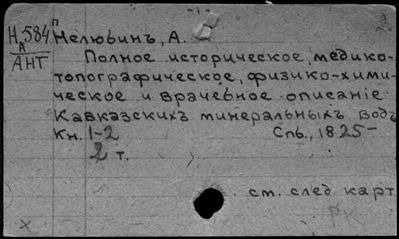 - 1 -
3
Н 584 П Нелюбинъ, А.
А
АНТ
Полное историческое, медико-
топографическое, физико-хими-
ческое и врачебное описаніе
Кавказскихъ минеральныхъ водъ
Кн. 1-2 Спб., 1825-
2 т.
ст. след карт
РК
х